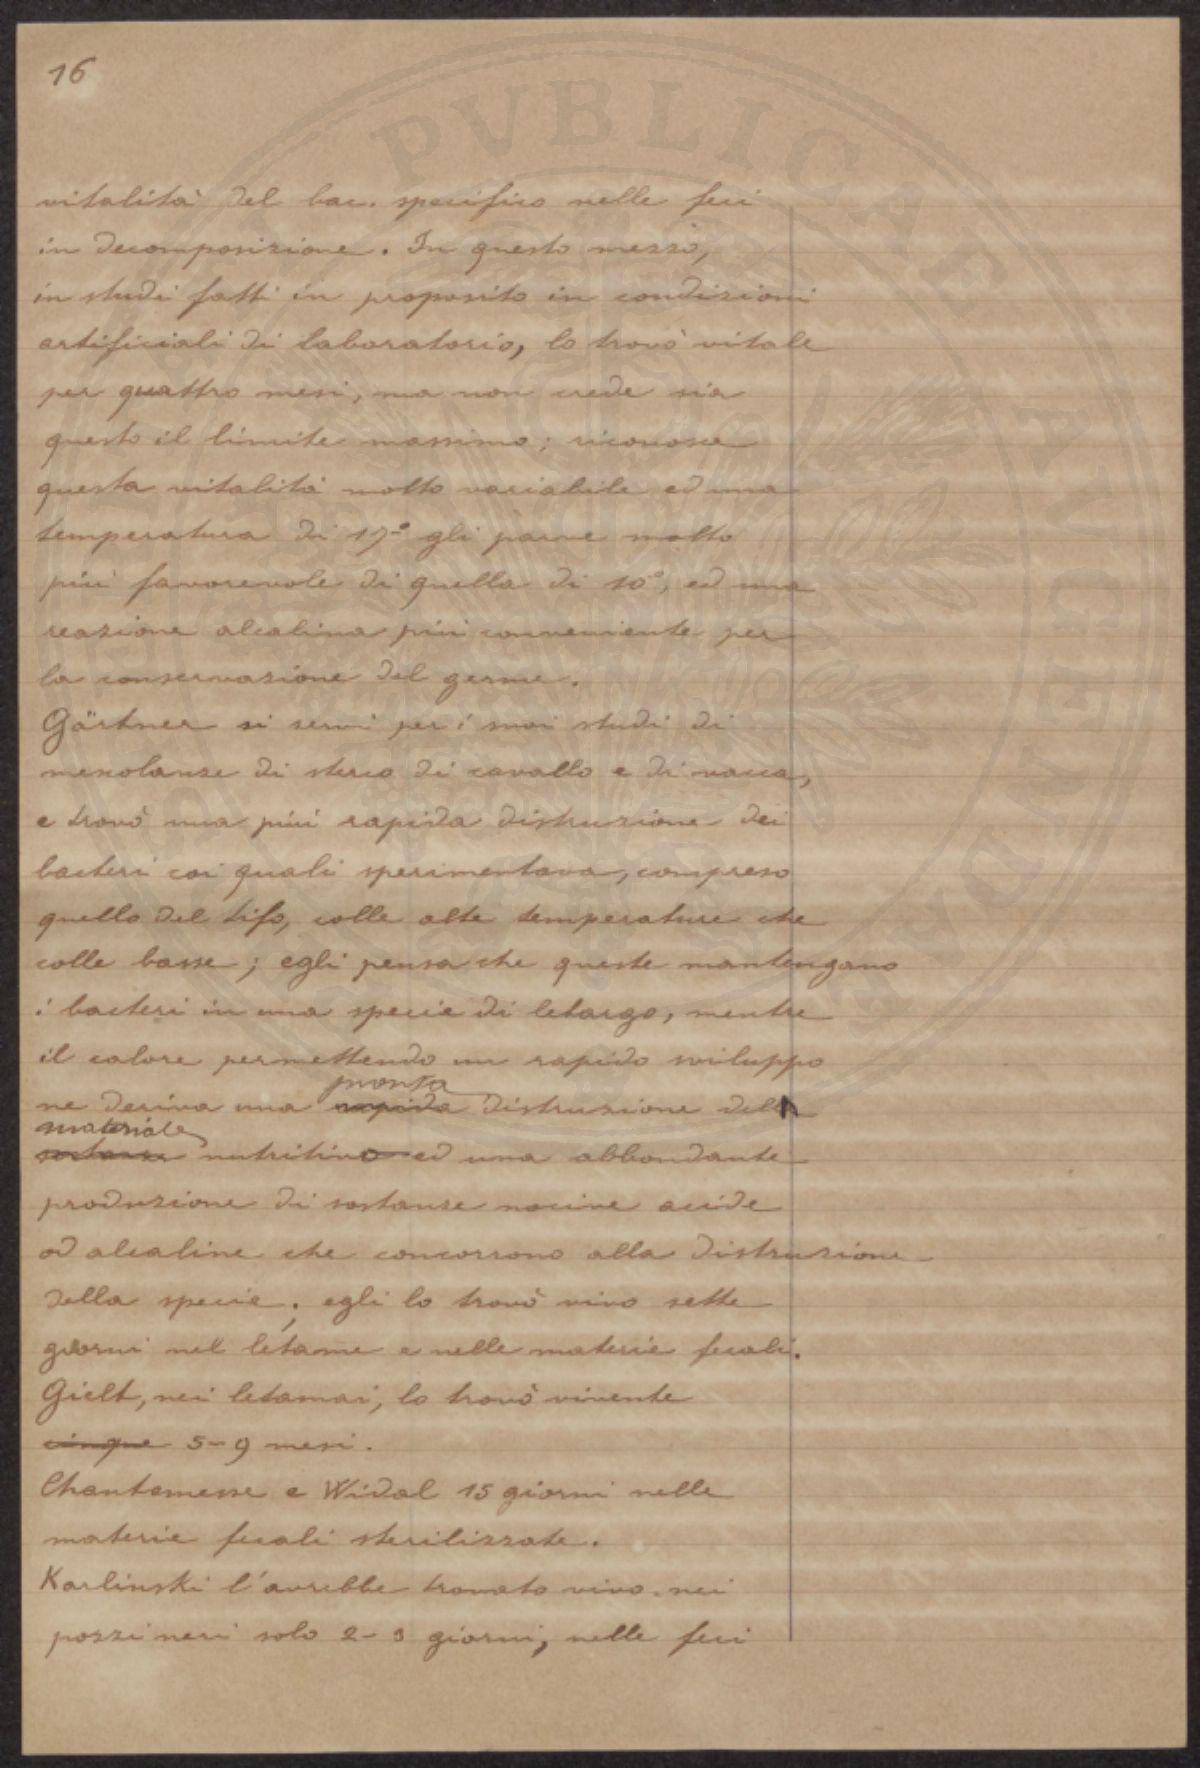 16
vitalità del bac. specifico nelle feci
in decomposizione. In questo mezzo,
in studi fatti in proposito in condizioni
artificiali di laboratorio, lo trovò vitale
per quattro mesi, ma non crede sia
questo il limite massimo; riconosce
questa vitalità molto variabile ed una
temperatura di 17° gli parve molto
più favorevole di quella di 10°, ed una
reazione alcalina più conveniente per
la conservazione del germe.
Gärtner si servì per i suoi studi di
mescolanze di sterco di cavallo e di vacca,
e trovò una più rapida distruzione dei
bacteri coi quali sperimentava, compreso
quello del tifo, colle alte temperature che
colle basse; egli pensa che queste mantengano
i bacteri in una specie di letargo, mentre
il calore permettendo un rapido sviluppo
pronta
ne deriva una rapida distruzione del
materiale
sostanze nutritivo ed una abbondante
produzione di sostanze nocive acide
od alcaline che concorrono alla distruzione
della specie; egli lo trovò vivo sette
giorni nel letame e nelle materie fecali.
Gielt, nei letamai, lo trovò vivente
cinque 5-9 mesi.
Chantemesse e Widal 15 giorni nelle
materie fecali sterilizzate.
Karlinski l'avrebbe trovato vivo nei
pozzi neri solo 2-3 giorni, nelle feci
PVBLICAE AVGENDAE